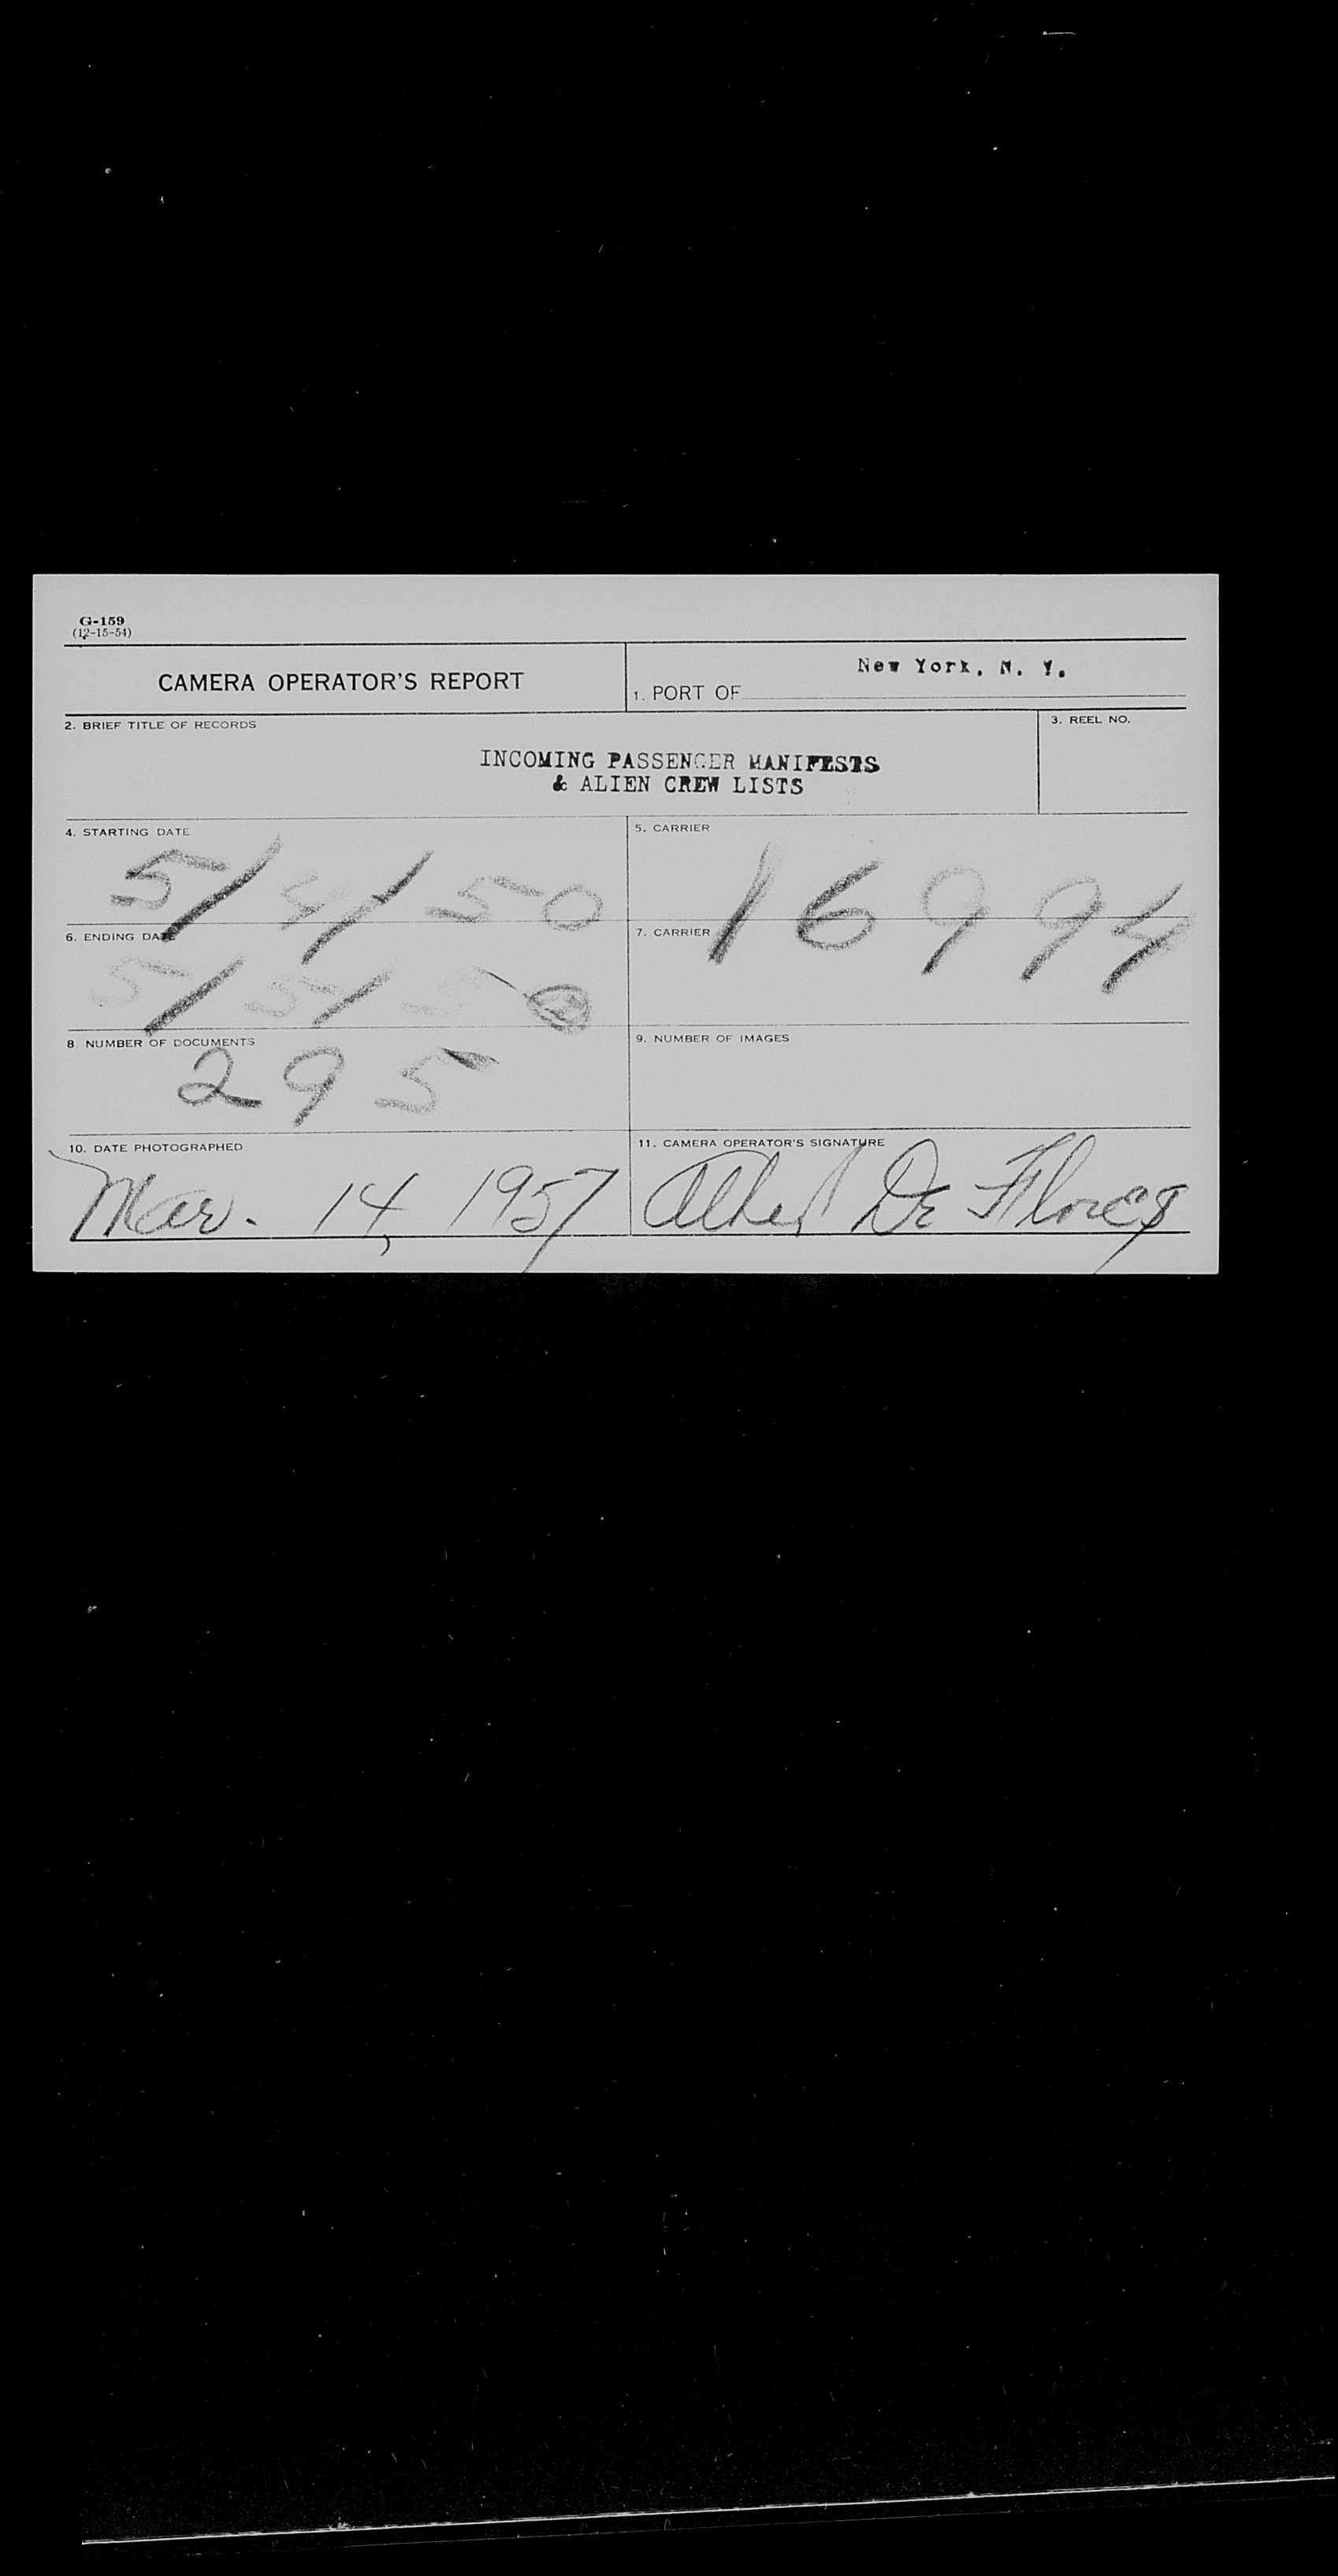 G-159
(12-15-54)
CAMERA OPERATOR'S REPORT
1. PORT OF New York, N. Y.
2. BRIEF TITLE OF RECORDS
INCOMING PASSENGER MANIFESTS
& ALIEN CREW LISTS
3. REEL NO.
4. STARTING DATE
5/4/50
5. CARRIER
16994
6. ENDING DATE
5/5/50
7. CARRIER
8. NUMBER OF DOCUMENTS
295
9. NUMBER OF IMAGES
10. DATE PHOTOGRAPHED
Mar. 14, 1957
11. CAMERA OPERATOR'S SIGNATURE
De Flores